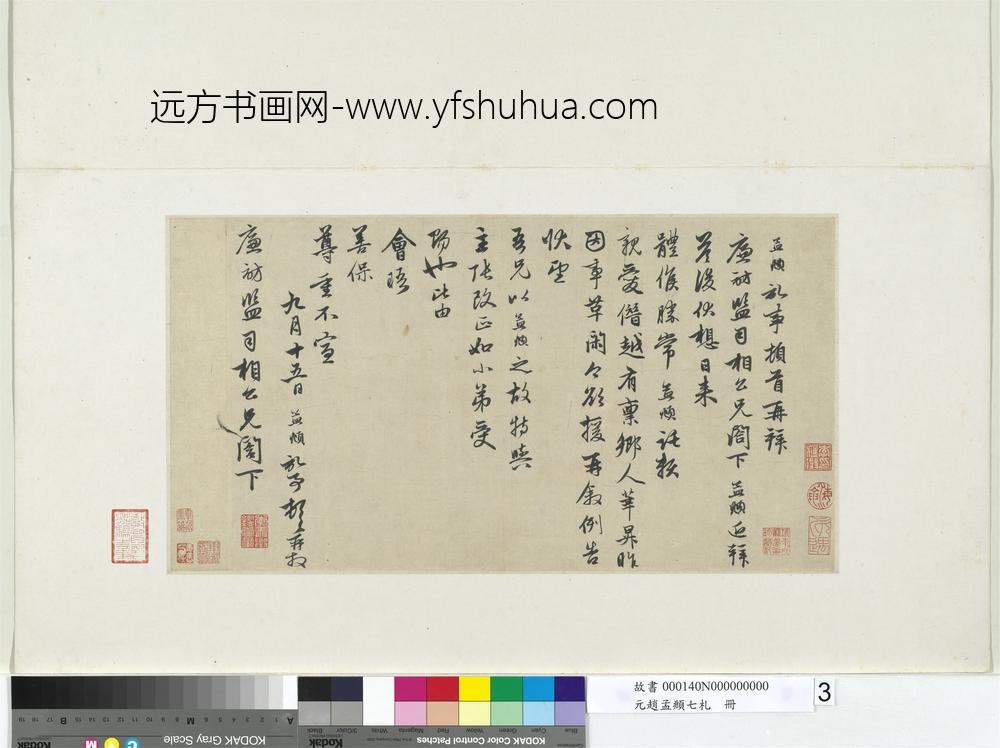 远方书画网-www.yfshuhua.com
孟頫記事頓首再拜
廉訪監司相公兄閤下孟頫近拜
答後伏想日來
體候勝常孟頫託契
親愛僭越有禀鄉人華昇昨
因事革閑今欲援再敘例告
伏望
吾兄以孟頫之故特與
主張改正如小弟受
賜也此由
會晤
善保
尊重不宣
九月十五日孟頫記事頓首再拜
廉訪監司相公兄閤下
故書 000140N000000000
元趙孟頫七札 冊
3
KODAK Gray Scale
A 1 2 3 4 5 6 M 8 9 10 11 12 13 14 15 B 17 18 19
C Y M
KODAK Color Control Patches
Blue Cyan Green Yellow Red Magenta White 3/Color Black
Kodak